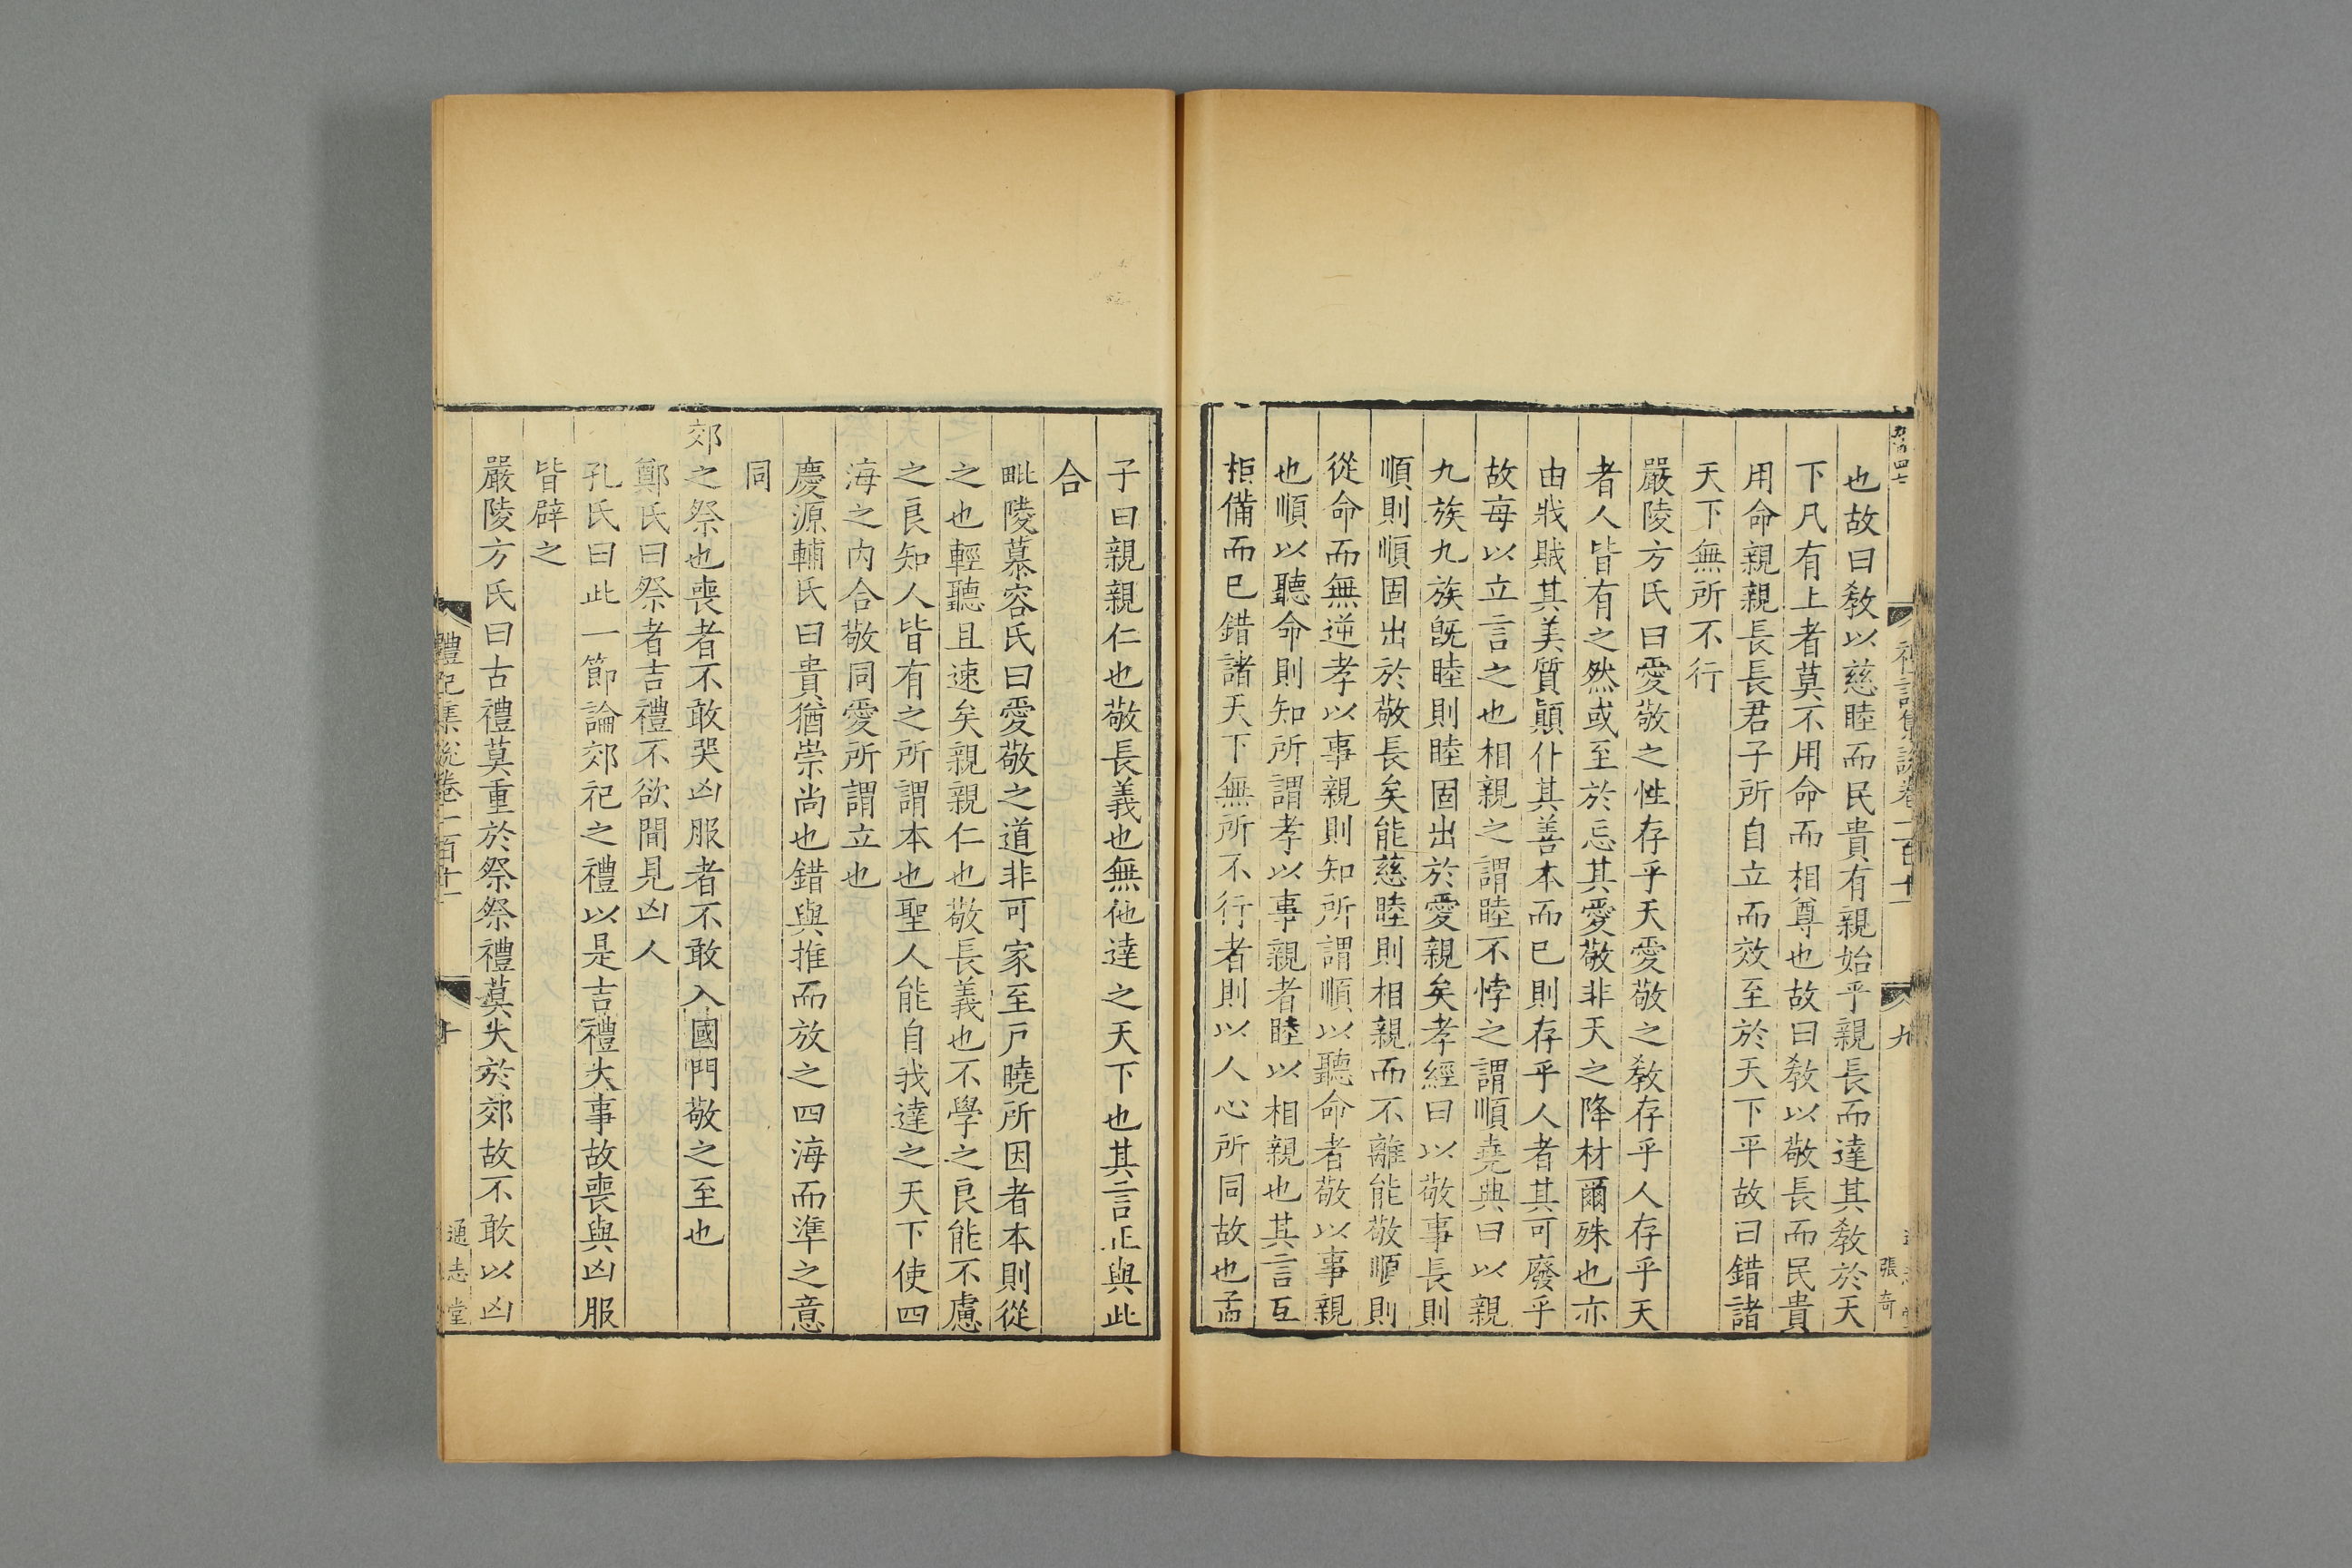 禮記集說卷一百十一
九
張奇
也故曰敎以慈睦而民貴有親始乎親長而達其敎於天
下凡有上者莫不用命而相尊也故曰敎以敬長而民貴
用命親親長長君子所自立而效至於天下平故曰錯諸
天下無所不行
嚴陵方氏曰愛敬之性存乎天愛敬之敎存乎人存乎天
者人皆有之然或至於忘其愛敬非天之降材爾殊也亦
由戕賊其美質顚仆其善本而已則存乎人者其可廢乎
故每以立言之也相親之謂睦不悖之謂順堯典曰以親
九族九族旣睦則睦固出於愛親矣孝經曰以敬事長則
順則順固出於敬長矣能慈睦則相親而不離能敬順則
從命而無逆孝以事親則知所謂順以聽命者敬以事親
也順以聽命則知所謂孝以事親者睦以相親也其言互
相備而已錯諸天下無所不行者則以人心所同故也孟
子曰親親仁也敬長義也無他達之天下也其言正與此
合
毗陵慕容氏曰愛敬之道非可家至戶曉所因者本則從
之也輕聽且速矣親親仁也敬長義也不學之良能不慮
之良知人皆有之所謂本也聖人能自我達之天下使四
海之內合敬同愛所謂立也
慶源輔氏曰貴猶崇尚也錯與推而放之四海而準之意
同
郊之祭也喪者不敢哭凶服者不敢入國門敬之至也
鄭氏曰祭者吉禮不欲聞見凶人
孔氏曰此一節論郊祀之禮以是吉禮大事故喪與凶服
皆辟之
嚴陵方氏曰古禮莫重於祭祭禮莫大於郊故不敢以凶
禮記集說卷一百十一
十
通志堂